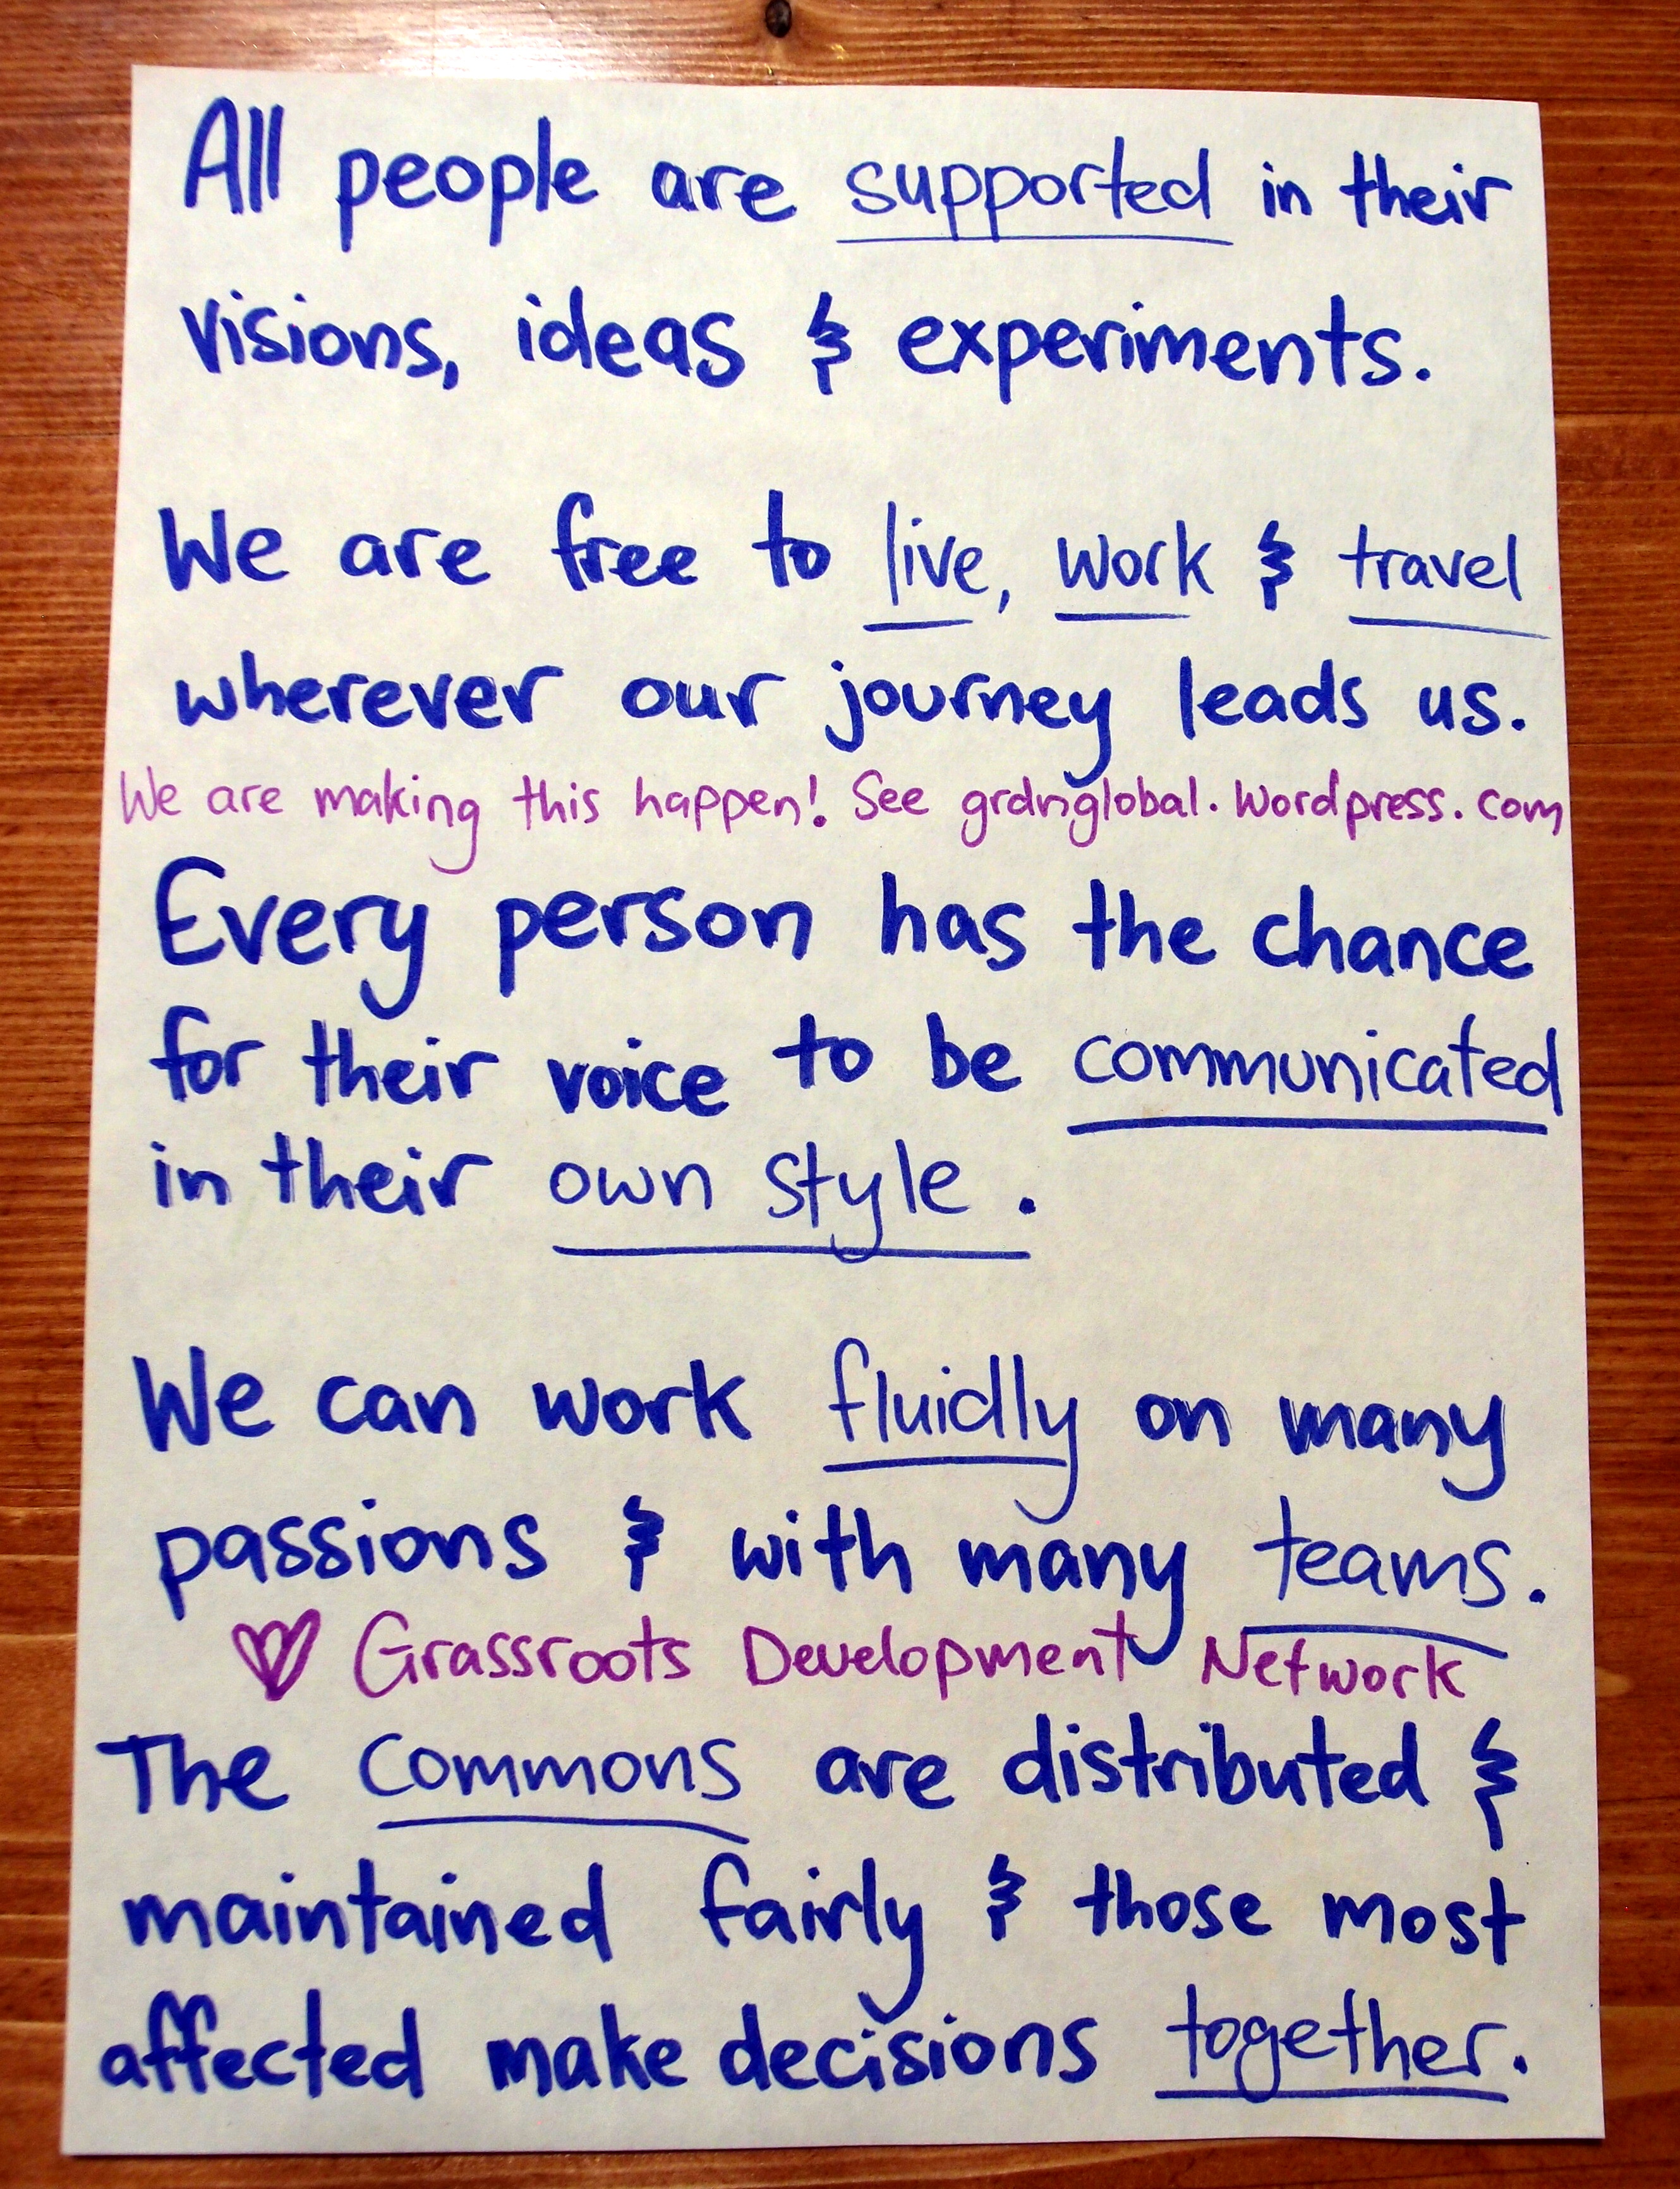 All people are supported in their
visions, ideas & experiments.
We are free to live, work & travel
wherever our journey leads us.
We are making this happen! See grdnglobal.wordpress.com
Every person has the chance
for their voice to be communicated
in their own style.
We can work fluidly on many
passions & with many teams.
♥ Grassroots Development Network
The commons are distributed &
maintained fairly & those most
affected make decisions together.